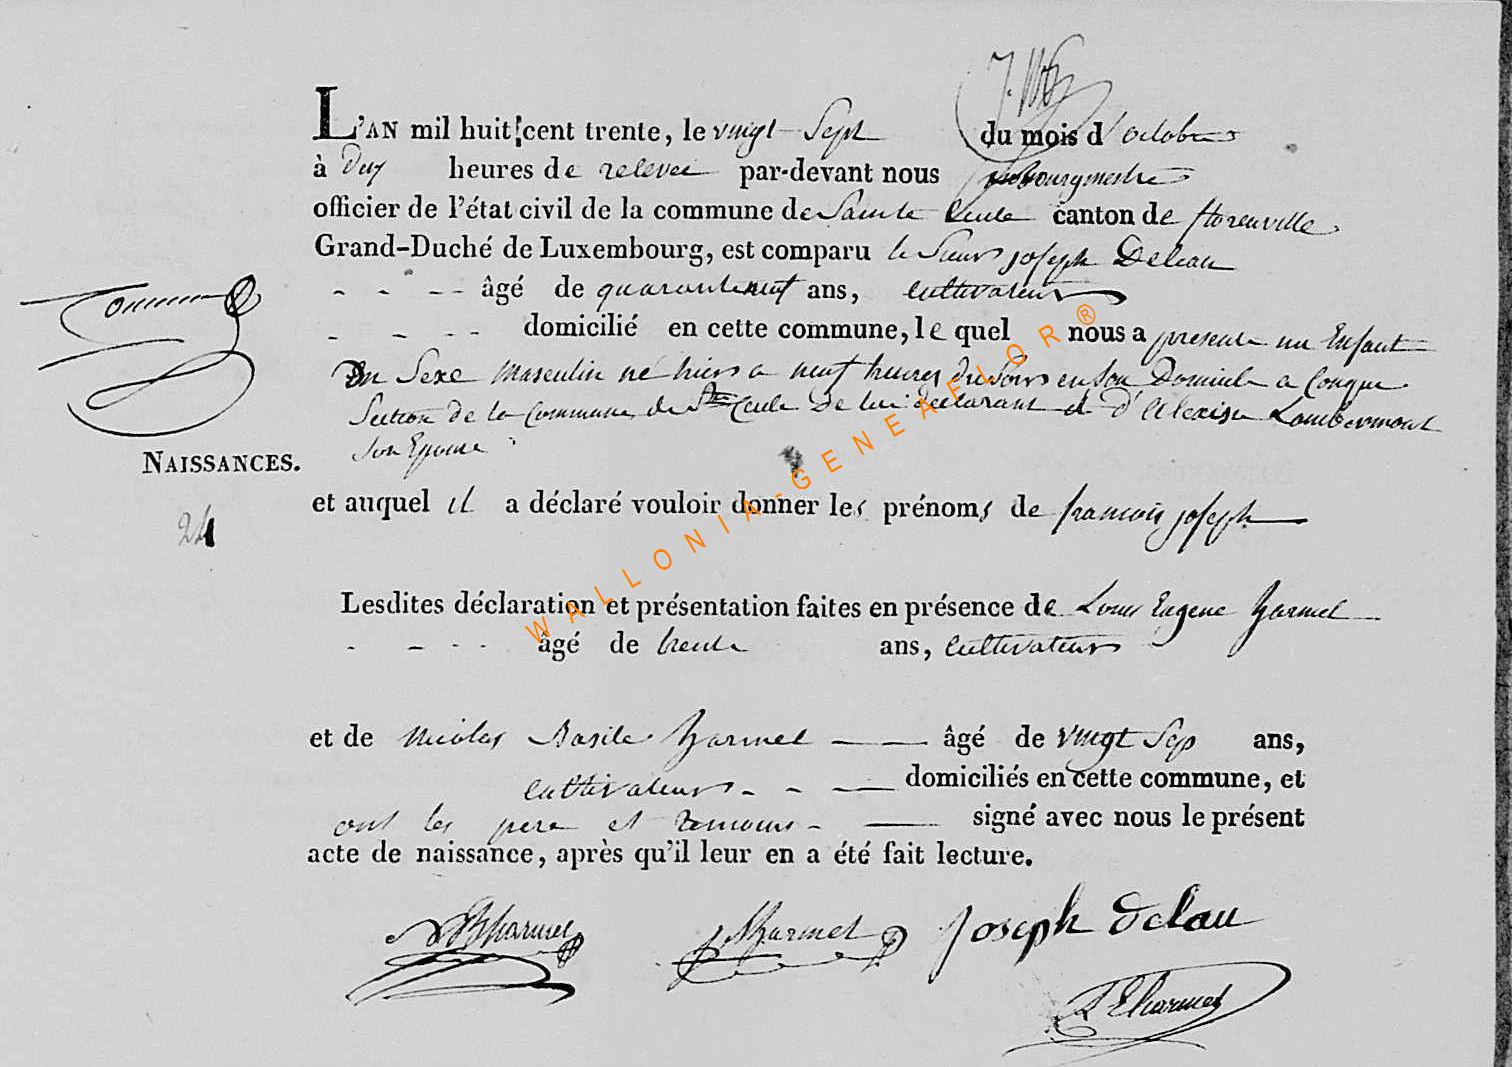 L'AN mil huit cent trente, le vingt Sept du mois d'octobre
à Dix heures de relevée par-devant nous bourgmestre
officier de l'état civil de la commune de Sainte Cecile canton de florenville
Grand-Duché de Luxembourg, est comparu le Sieur joseph Deleau
âgé de quaranteneuf ans, cultivateur
domicilié en cette commune, le quel nous a presente un Enfant
Du Sexe Masculin né hier a neuf heures du Soir en Son Domicile a Conque
Section de la Commune de Ste Cecile De lui declarant et d'Alexise Lambermont
Son Epouse
NAISSANCES.
et auquel il a déclaré vouloir donner les prénoms de francois joseph
24
Lesdites déclaration et présentation faites en présence de Louis Eugene harmel
âgé de trente ans, cultivateur
et de Nicolas Basile harmel âgé de vingt Sep ans,
cultivateur domiciliés en cette commune, et
ont les pere et temoins signé avec nous le présent
acte de naissance, après qu'il leur en a été fait lecture.
NBharmel harmel Joseph Delau
LEharmel
WALLONIA-GENEAFLOR®